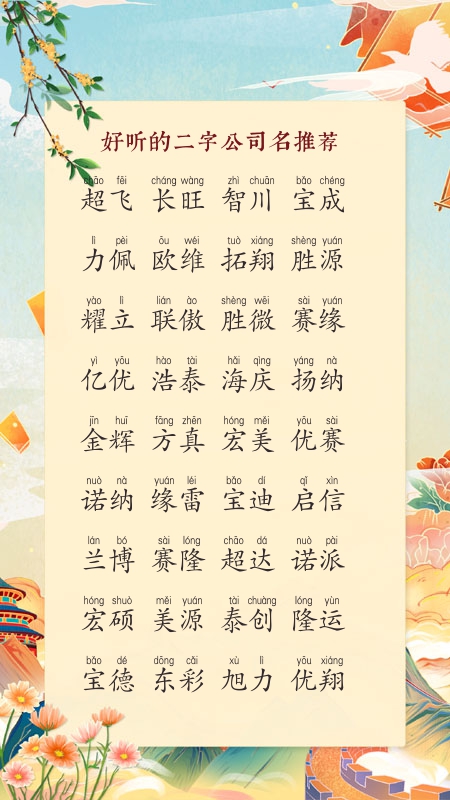 好听的二字公司名推荐
chāo fēi cháng wàng zhì chuān bǎo chéng
超飞 长旺 智川 宝成
lì pèi ōu wéi tuò xiáng shèng yuán
力佩 欧维 拓翔 胜源
yào lì lián ào shèng wēi sài yuán
耀立 联傲 胜微 赛缘
yì yōu hào tài hǎi qìng yáng nà
亿优 浩泰 海庆 扬纳
jīn huī fāng zhēn hóng měi yōu sài
金辉 方真 宏美 优赛
nuò nà yuán léi bǎo dí qǐ xìn
诺纳 缘雷 宝迪 启信
lán bó sài lóng chāo dá nuò pài
兰博 赛隆 超达 诺派
hóng shuò měi yuán tài chuàng lóng yùn
宏硕 美源 泰创 隆运
bǎo dé dōng cǎi xù lì yōu xiáng
宝德 东彩 旭力 优翔